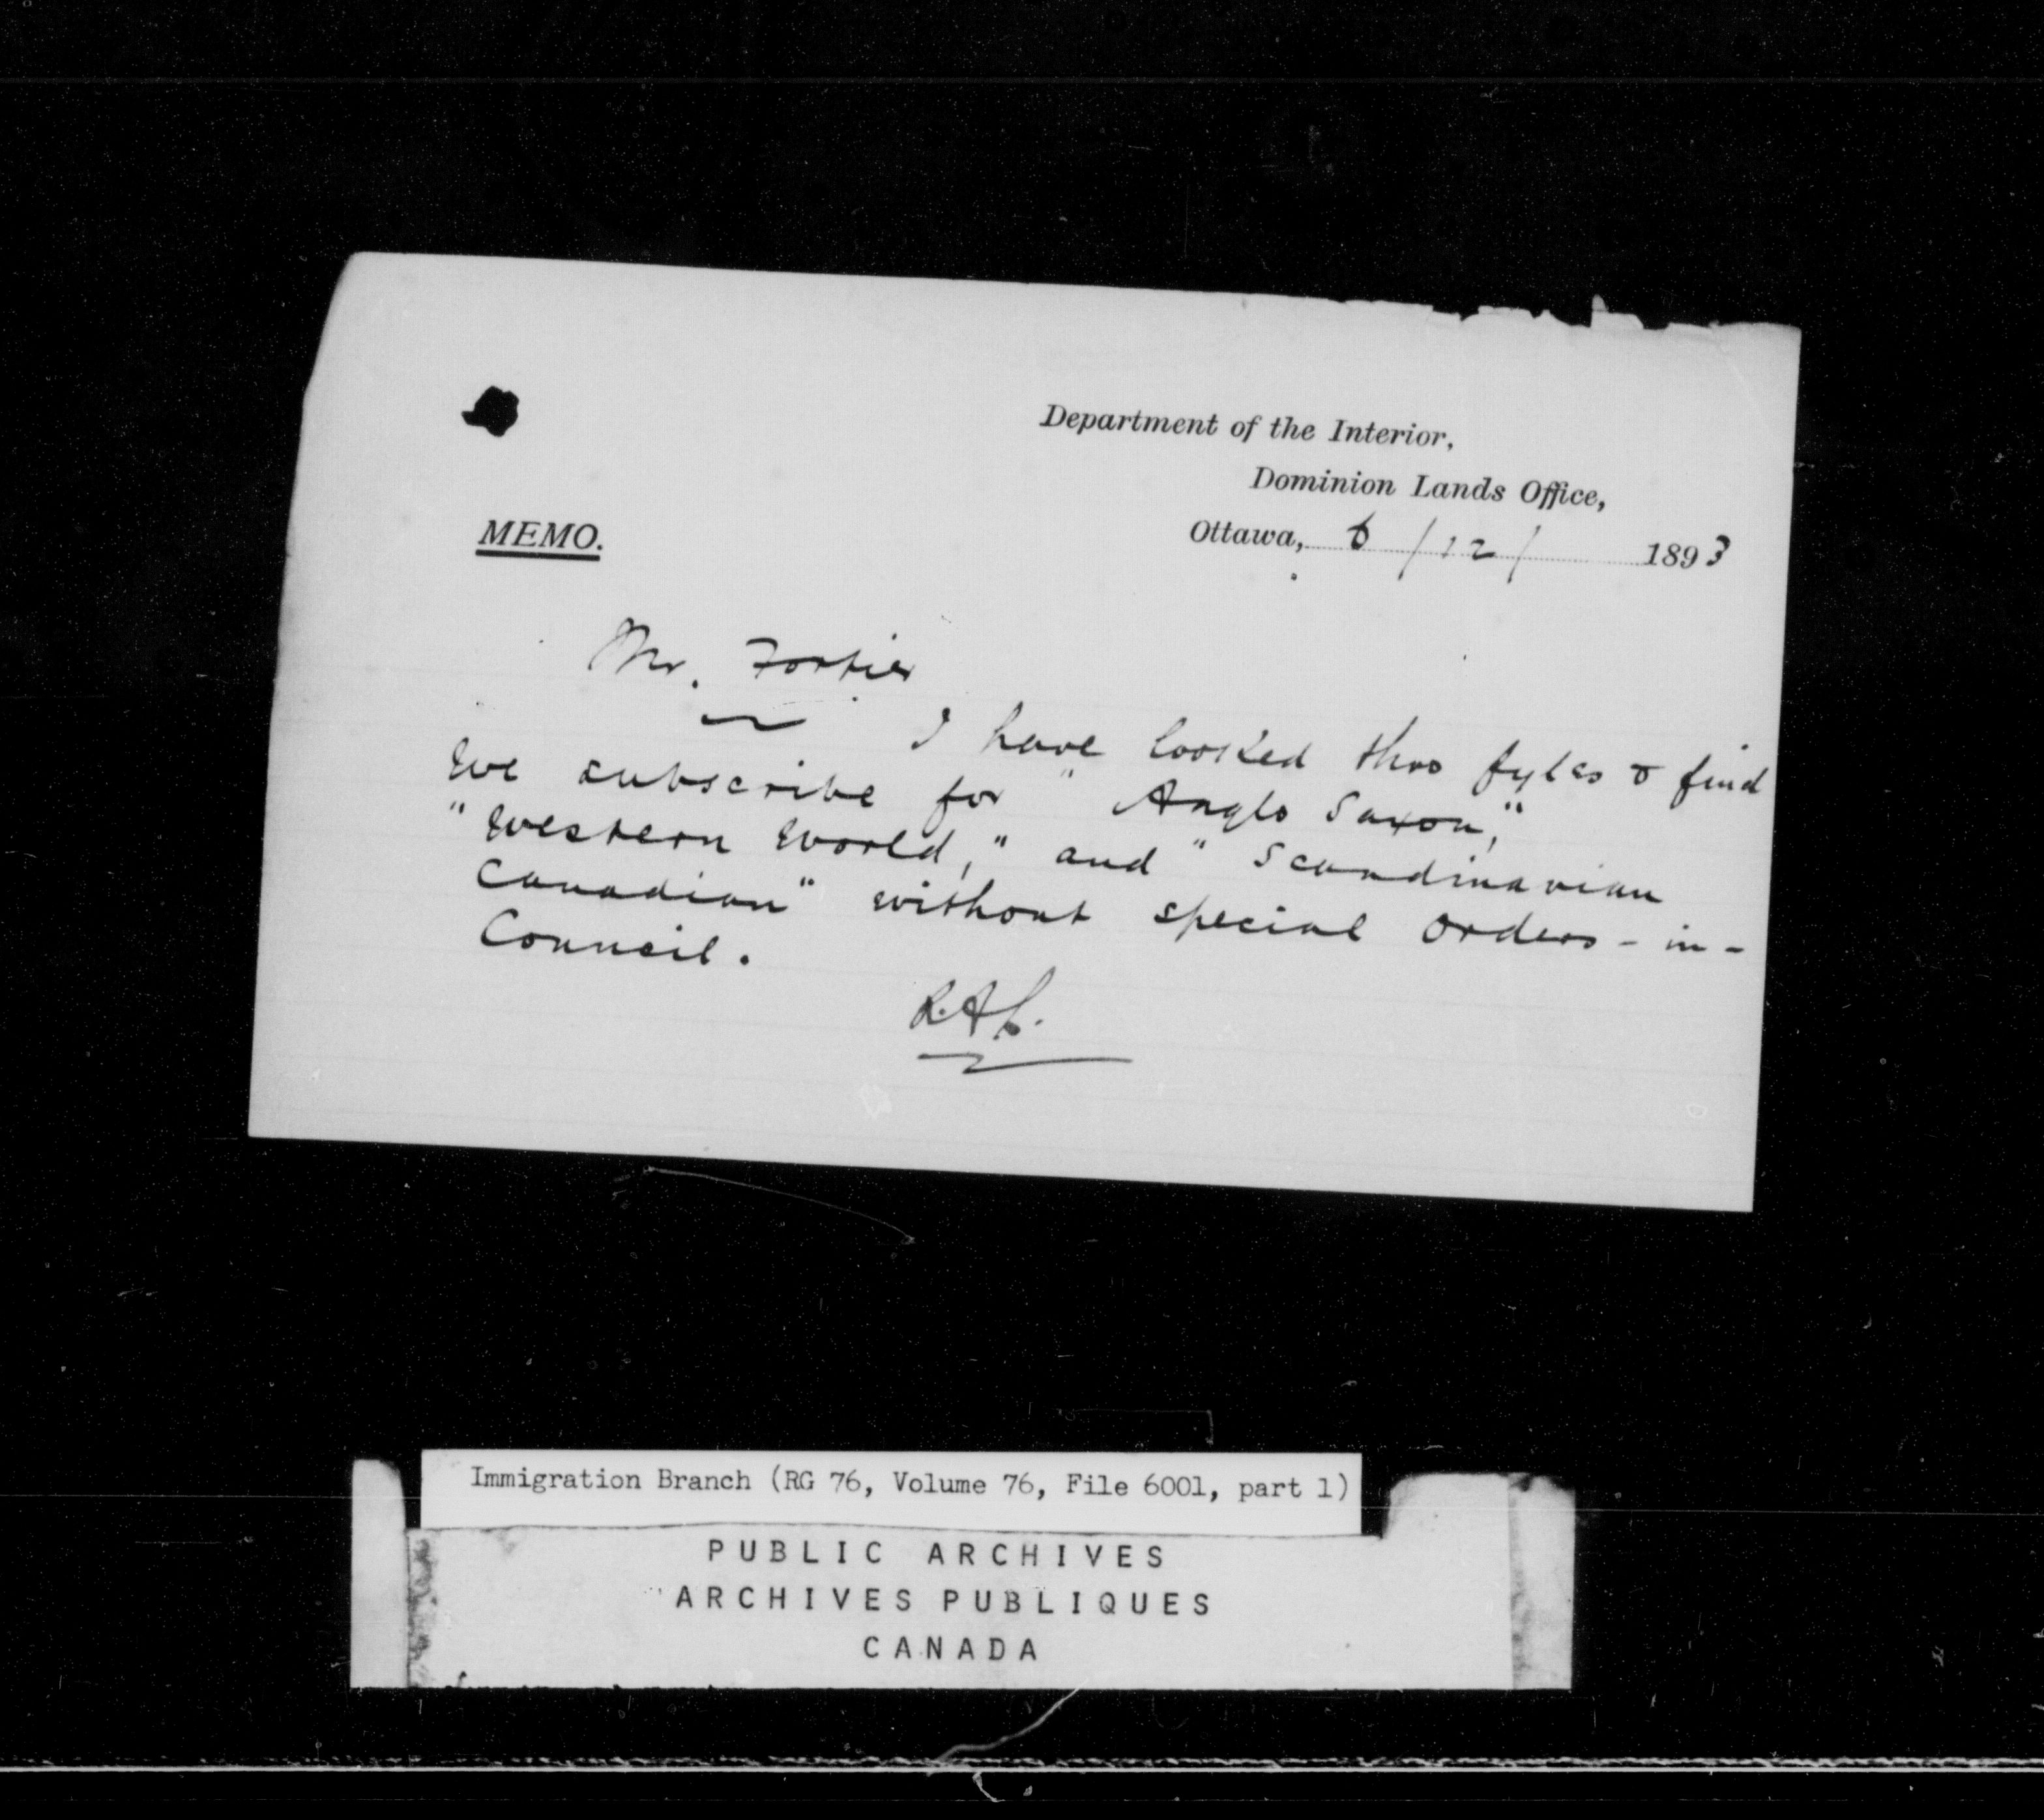 Department of the Interior,
Dominion Lands Office,
MEMO.
Ottawa, 6/12/ 1893
Mr. Fortier
I have looked thro fyles & find
we subscribe for "Anglo Saxon,"
"Western World," and "Scandinavian
Canadian" without special Orders-in-
Council.
Immigration Branch (RG 76, Volume 76, File 6001, part 1)
PUBLIC ARCHIVES
ARCHIVES PUBLIQUES
CANADA